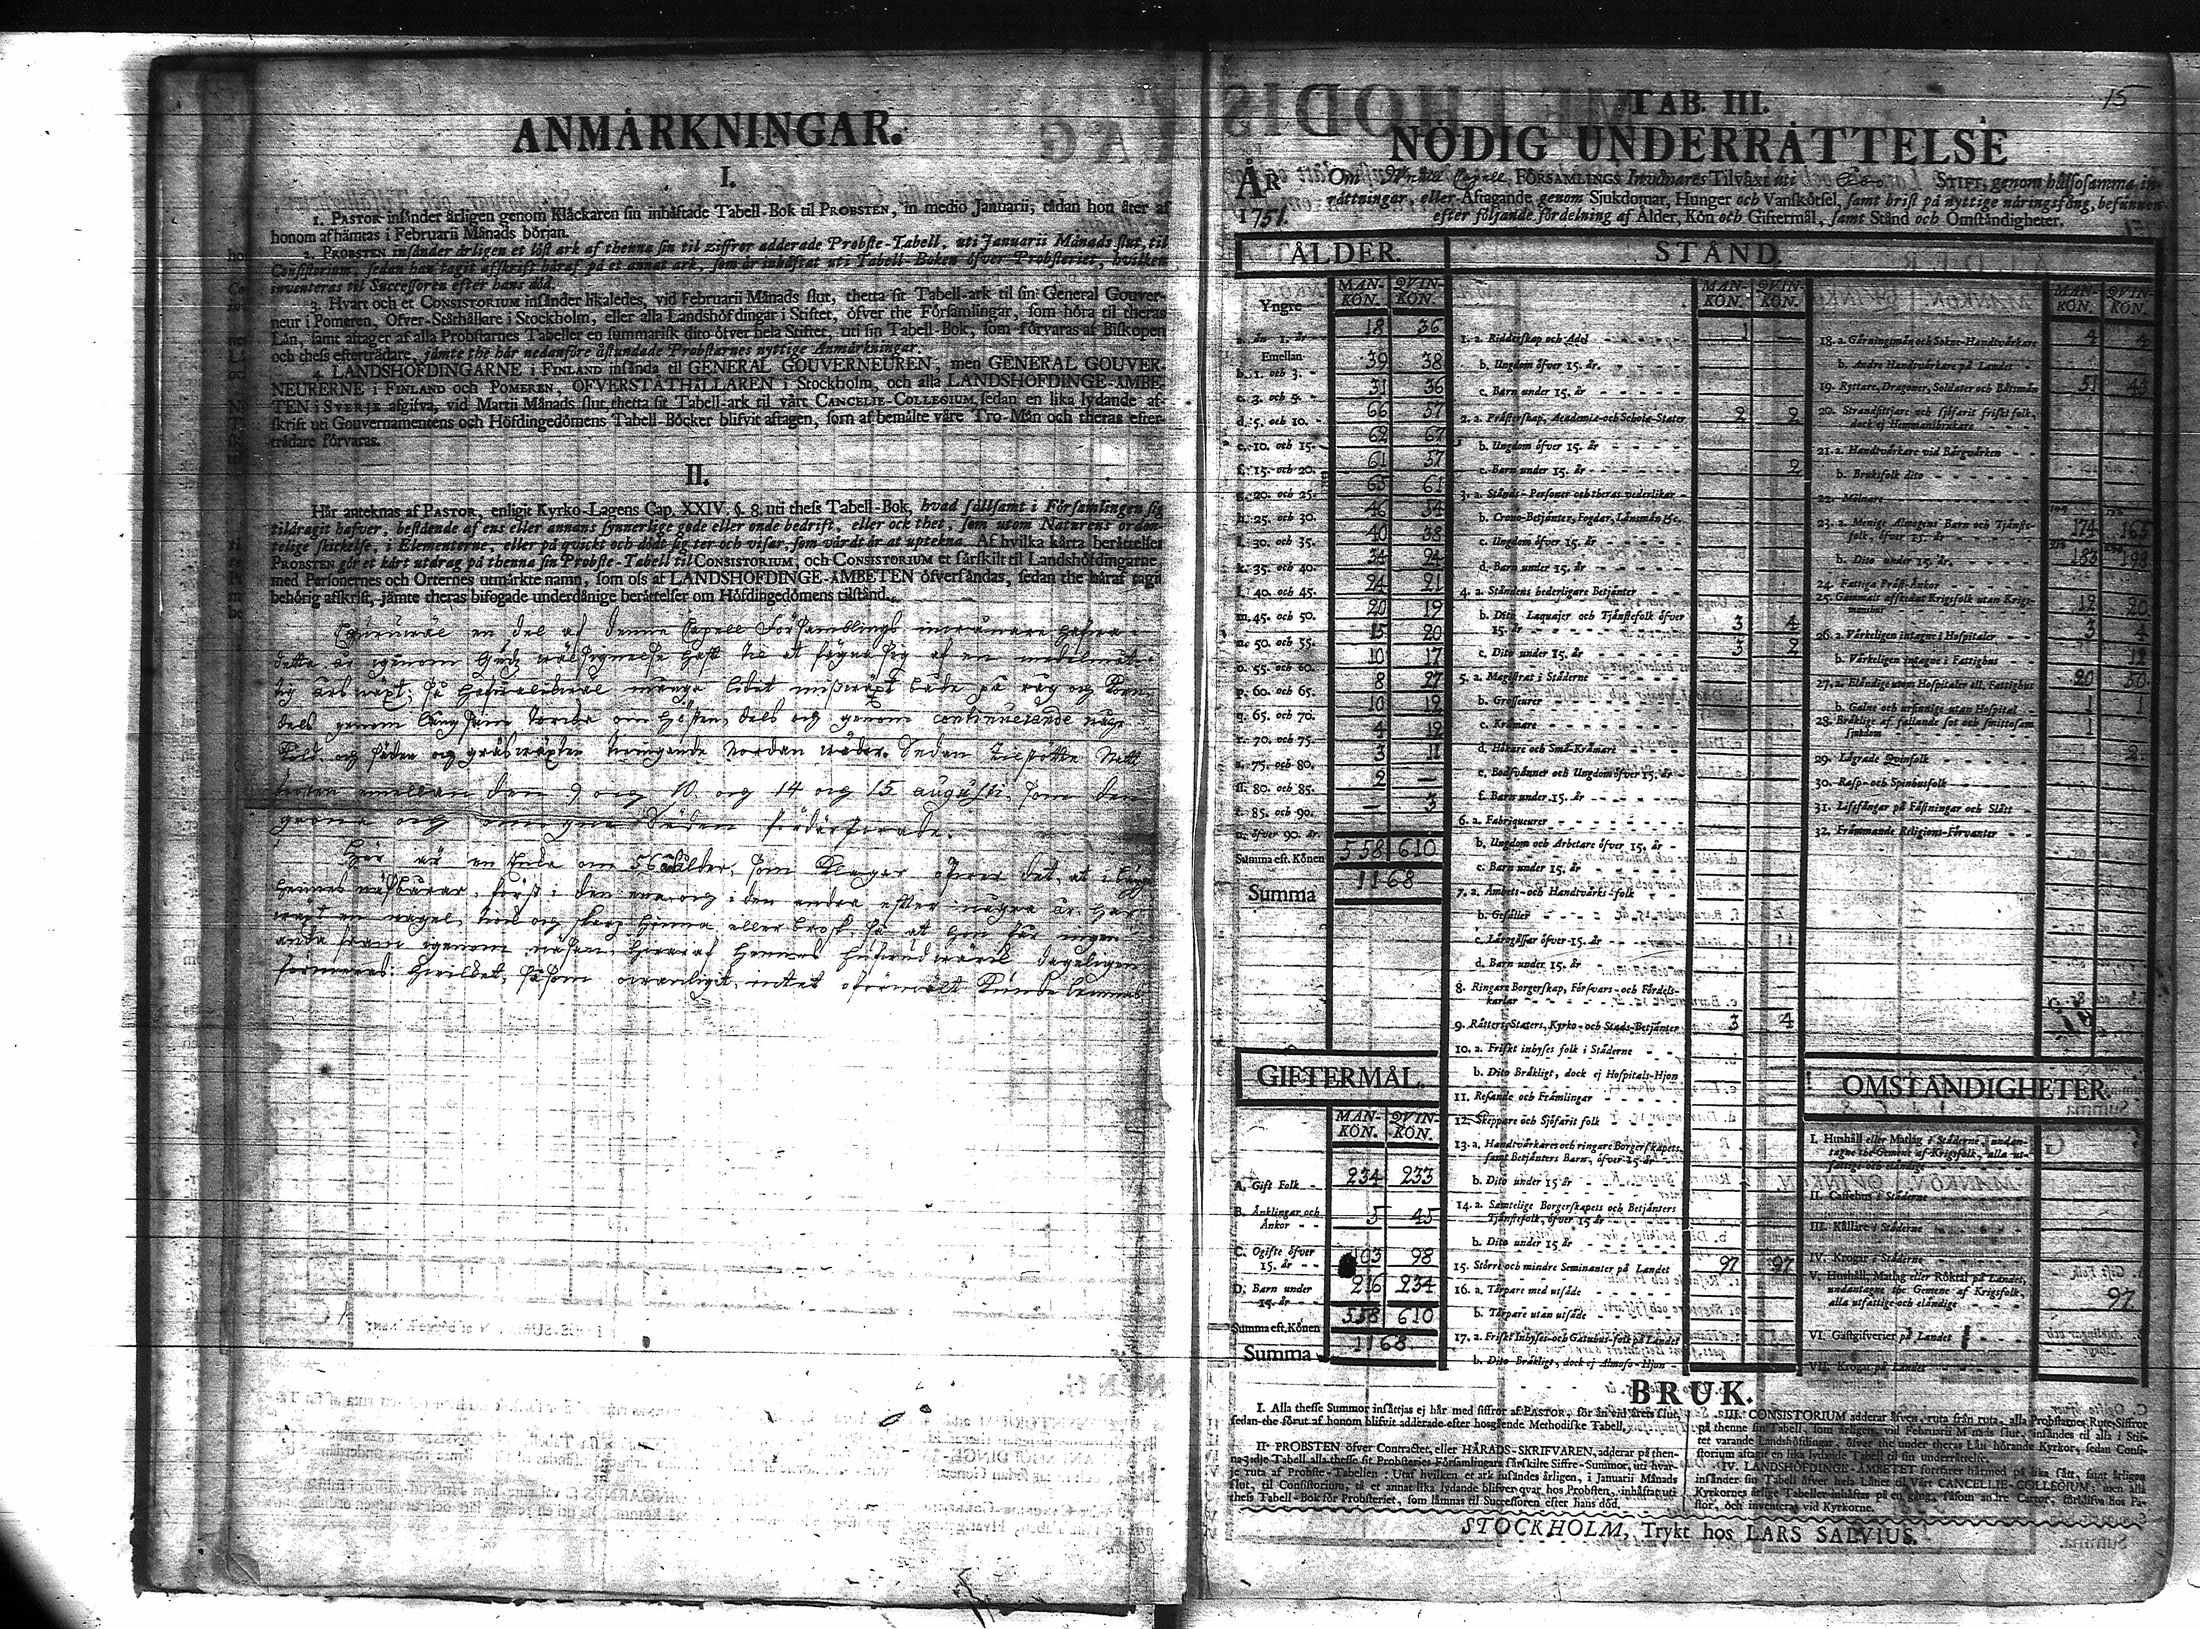 ANMÄRKNINGAR.
I.
1. PASTOR insänder årligen genom Klåckaren sin inhäftade Tabell-Bok til PROBSTEN, in medio Januarii, tådan hon åter af
honom afhämtas i Februarii Månads början.
2. PROBSTEN insänder årligen et löst ark af thenna sin til ziffror adderade Probste-Tabell, uti Januarii Månads slut, til
Consistorium, sedan han tagit afskrift häraf på et annat ark, som är inhäftat uti Tabell-Boken öfver Probsteriet, hvilken
inventeras til Successoren efter hans död.
3. Hvart och et CONSISTORIUM insänder likaledes, vid Februarii Månads slut, thetta sit Tabell-ark til sin General Gouver-
neur i Pomeren, Öfver-Ståthållare i Stockholm, eller alla Landshöfdingar i Stiftet, öfver the Församlingar, som höra til theras
Län, samt aftager af alla Probstarnes Tabeller en summarisk dito öfver hela Stiftet, uti sin Tabell-Bok, som förvaras af Biskopen
och thess efterträdare, jämte the här nedanföre åstundade Probstarnes nyttige Anmärkningar.
4. LANDSHÖFDINGARNE i FINLAND insända til GENERAL GOUVERNEUREN, men GENERAL GOUVER-
NEURERNE i FINLAND och POMEREN, ÖFVERSTÅTHÅLLAREN i Stockholm, och alla LANDSHÖFDINGE-ÄMBE-
TEN i SVERJE afgifva, vid Martii Månads slut thetta sit Tabell-ark til vårt CANCELIE-COLLEGIUM, sedan en lika lydande af-
skrift uti Gouvernamentens och Höfdingedömens Tabell-Böcker blifvit aftagen, som af bemälte våre Tro-Män och theras efter-
trädare förvaras.
II.
Här anteknas af PASTOR, enligit Kyrko-Lagens Cap. XXIV. §. 8. uti thess Tabell-Bok, hvad sällsamt i Församlingen sig
tildragit hafver, bestående af ens eller annans synnerlige gode eller onde bedrift, eller ock thet, som utom Naturens orden-
telige skickelse, i Elementerne, eller på qvickt och dödt sig ter och visar, som värdt är at uptekna. Af hvilka korta berättelser
PROBSTEN gör et kort utdrag på thenna sin Probste-Tabell til CONSISTORIUM, och CONSISTORIUM et särskilt til Landshöfdingarne,
med Personernes och Orternes utmärkte namn, som oss af LANDSHÖFDINGE-ÄMBETEN öfversändas, sedan the häraf tagit
behörig afskrift, jämte theras bifogade underdånige berättelser om Höfdingedömens tilstånd.
en del af denne Capell Församblings inwånare hafwa
detta år igenom Gudz wälsignelse haft til at fägna sig af en medelmåt-
tig årswäxt; så hafwa likwäl många lidit mißwäxt både på råg och Korn
dels genom långsam torcka om hösten, dels och genom continuerande
Kjöld och säden och gräswäxten twingande Nordan wäder. Sedan
frosten emellan den 9 och 10 och 14 och 15 augusti, som den
gröna och Säden fördärfwade.
Här är en om 56 ålder, som Klagar öfwer det, at i
hennes näsbårar, först i den ena och i den andra efter några år har
wäxt en nagel, eller brosk, så at hon får ingen
anda fram igenom näsan, hwaraf hennes hufwudwärk dageligen
förmeras: hwilcket, såsom owanligit, intet oförmält Kunde lämnas
15
TAB. III.
NÖDIG UNDERRÄTTELSE
ÅR 1751.
Om Capell FÖRSAMLINGS Invånares Tilväxt uti Åbo STIFT, genom hälsosamma in-
rättningar, eller Aftagande genom Sjukdomar, Hunger och Vanskötsel, samt brist på nyttige näringsfång, befunnen
efter följande fördelning af Ålder, Kön och Giftermål, samt Stånd och Omständigheter.
ÅLDER.
MAN-KÖN. QVIN-KÖN.
Yngre
a. än 1. år 18 36
Emellan
b. 1. och 3. 39 38
c. 3. och 5. 31 36
d. 5. och 10. 66 57
e. 10. och 15. 62 67
f. 15. och 20. 61 57
g. 20. och 25. 65 61
h. 25. och 30. 46 54
i. 30. och 35. 40 38
k. 35. och 40. 34 24
l. 40. och 45. 24 21
m. 45. och 50. 20 19
n. 50. och 55. 15 20
o. 55. och 60. 10 17
p. 60. och 65. 8 27
q. 65. och 70. 10 12
r. 70. och 75. 4 12
s. 75. och 80. 3 11
ss. 80. och 85. 2 —
t. 85. och 90. — 3
u. öfver 90. år.
Summa eft. Könen 558 610
Summa 1168
GIFTERMÅL.
MAN-KÖN. QVIN-KÖN.
A. Gift Folk 234 233
B. Änklingar och Änkor 5 45
C. Ogifte öfver 15. år 103 98
D. Barn under 15. år 216 234
Summa eft. Könen 558 610
Summa 1168
STÅND.
MAN-KÖN. QVIN-KÖN.
1. a. Ridderskap och Adel 1 —
b. Ungdom öfver 15. år.
c. Barn under 15. år
2. a. Prästerskap, Academiæ-och Scholæ-Stater 2 2
b. Ungdom öfver 15. år
c. Barn under 15. år 2
3. a. Stånds-Personer och theras vederlikar
b. Crono-Betjänter, Fogdar, Länsmän &c.
c. Ungdom öfver 15. år
d. Barn under 15. år
4. a. Ståndens hederligare Betjänter
b. Dito Laquajer och Tjänstefolk öfver 15. år 3 4
c. Dito under 15. år 3 2
5. a. Magistrat i Städerne
b. Grosseurer
c. Krämare
d. Hökare och Små-Krämare
e. Bodsvänner och Ungdom öfver 15. år
f. Barn under 15. år
6. a. Fabriqueurer
b. Ungdom och Arbetare öfver 15. år
c. Barn under 15. år
7. a. Ämbets-och Handtvärks-folk
b. Gesäller
c. Lärogåssar öfver 15. år
d. Barn under 15. år
8. Ringare Borgerskap, Försvars-och Fördels-karlar
9. Rätters, Staters, Kyrko-och Stads-Betjänter 3 4
10. a. Friskt inhyses folk i Städerne
b. Dito Bräkligt, dock ej Hospitals-Hjon
11. Resande och Främlingar
12. Skeppare och Sjöfarit folk
13. a. Handtvärkares och ringare Borgerskapets, samt Betjänters Barn, öfver 15. år
b. Dito under 15 år
14. a. Samtelige Borgerskapets och Betjänters Tjänstefolk, öfver 15 år
b. Dito under 15 år
15. Större och mindre Seminanter på Landet 97 97
16. a. Torpare med utsäde
b. Torpare utan utsäde
17. a. Friskt Inhyses-och Gatuhus-folk på Landet
b. Dito Bräkligt, dock ej Almoso-Hjon
MAN-KÖN. QVIN-KÖN.
18. a. Gärningsmän och Sokne-Handtvärkare 4 4
b. Andre Handtvärkare på Landet
19. Ryttare, Dragoner, Soldater och Båtsmän 51 43
20. Strandsittjare och sjöfarit friskt folk, dock ej Hemmansbrukare
21. a. Handtvärkare vid Bärgvärken
b. Bruksfolk dito
22. Mölnare
23. a. Menige Almogens Barn och Tjänste-folk, öfver 15. år 174 165
b. Dito under 15. år. 183 198
24. Fattiga Präst-Änkor
25. Gammalt afskedat Krigsfolk utan Krigsmanshus 12 20
26. a. Värkeligen intagne i Hospitaler 3 4
b. Värkeligen intagne i Fattighus 12
27. a. Eländige utom Hospitaler ell. Fattighus 20 50
b. Galne och ursinnige utan Hospital 1 1
28. Bräklige af fallande sot och smittosam sjukdom 1
29. Lägrade Qvinfolk 2
30. Rasp- och Spinhusfolk
31. Lifsfångar på Fästningar och Slått
32. Främmande Religions-Förvanter
OMSTÄNDIGHETER.
I. Hushåll eller Matlag i Städerne, undantagne the Gemene af Krigsfolk, alla utfattige och eländige
II. Caffehus i Städerne
III. Källare i Städerne
IV. Krogar i Städerne
V. Hushåll, Matlag eller Röktal på Landet, undantagne the Gemene af Krigsfolk, alla utfattige och eländige 97
VI. Gästgifverier på Landet
VII. Krogar på Landet
BRUK.
I. Alla thesse Summor insättjas ej här med siffror af PASTOR, för än vid årets slut,
sedan the förut af honom blifvit adderade efter hosgående Methodiske Tabell.
II. PROBSTEN öfver Contractet, eller HÄRADS-SKRIFVAREN, adderar på then-
na 3:dje Tabell alla thesse sit Probsteries Församlingars särskilte Siffre-Summor, uti hvar-
je ruta af Probste-Tabellen: Utaf hvilken et ark insändes årligen, i Januarii Månads
slut, til Consistorium, tå et annat lika lydande blifver qvar hos Probsten, inhäftat uti
thess Tabell-Bok för Probsteriet, som lämnas til Successoren efter hans död.
III. CONSISTORIUM adderar äfven, ruta från ruta, alla Probstarnes Rute-Siffror
på thenne sin Tabell, som årligen, vid Februarii Månads slut, insändes til alla i Stif-
tet varande Landshöfdingar, öfver the under theras Län hörande Kyrkor, sedan Consi-
storium aftagit en lika lydande Tabell til sin underrättelse.
IV. LANDSHÖFDINGE-ÄMBETET fortfarer härmed på lika sätt, samt årligen
insänder sin Tabell öfver hela Länet til Vårt CANCELLIE-COLLEGIUM; men alla
Kyrkornes årlige Tabeller inhäftas på en gång, såsom andre Cartor, förblifva hos Pa-
stor, och inventeras vid Kyrkorne.
STOCKHOLM, Trykt hos LARS SALVIUS.